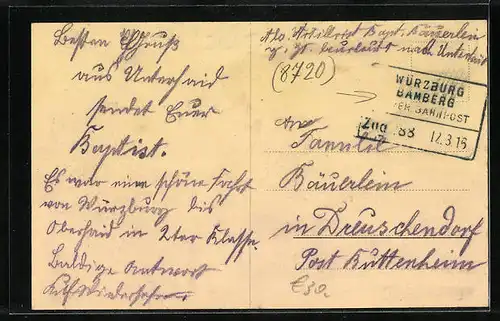 Besten Gruß
aus Unterhaid
sendet Euer
Baptist.
Es war eine schöne Fahrt
von Würzburg bis
Oberhaid in 2ter Klasse.
Baldige Antwort
Auf Wiedersehen
Abs. Artillerist Bapt. Bäuerlein
z. Zt. beurlaubt nach Unterhaid
(8720)
WÜRZBURG
BAMBERG
BAHNPOST
Zug 88 12.3.16
An
Familie
Bäuerlein
in Dreuschendorf
Post Buttenheim